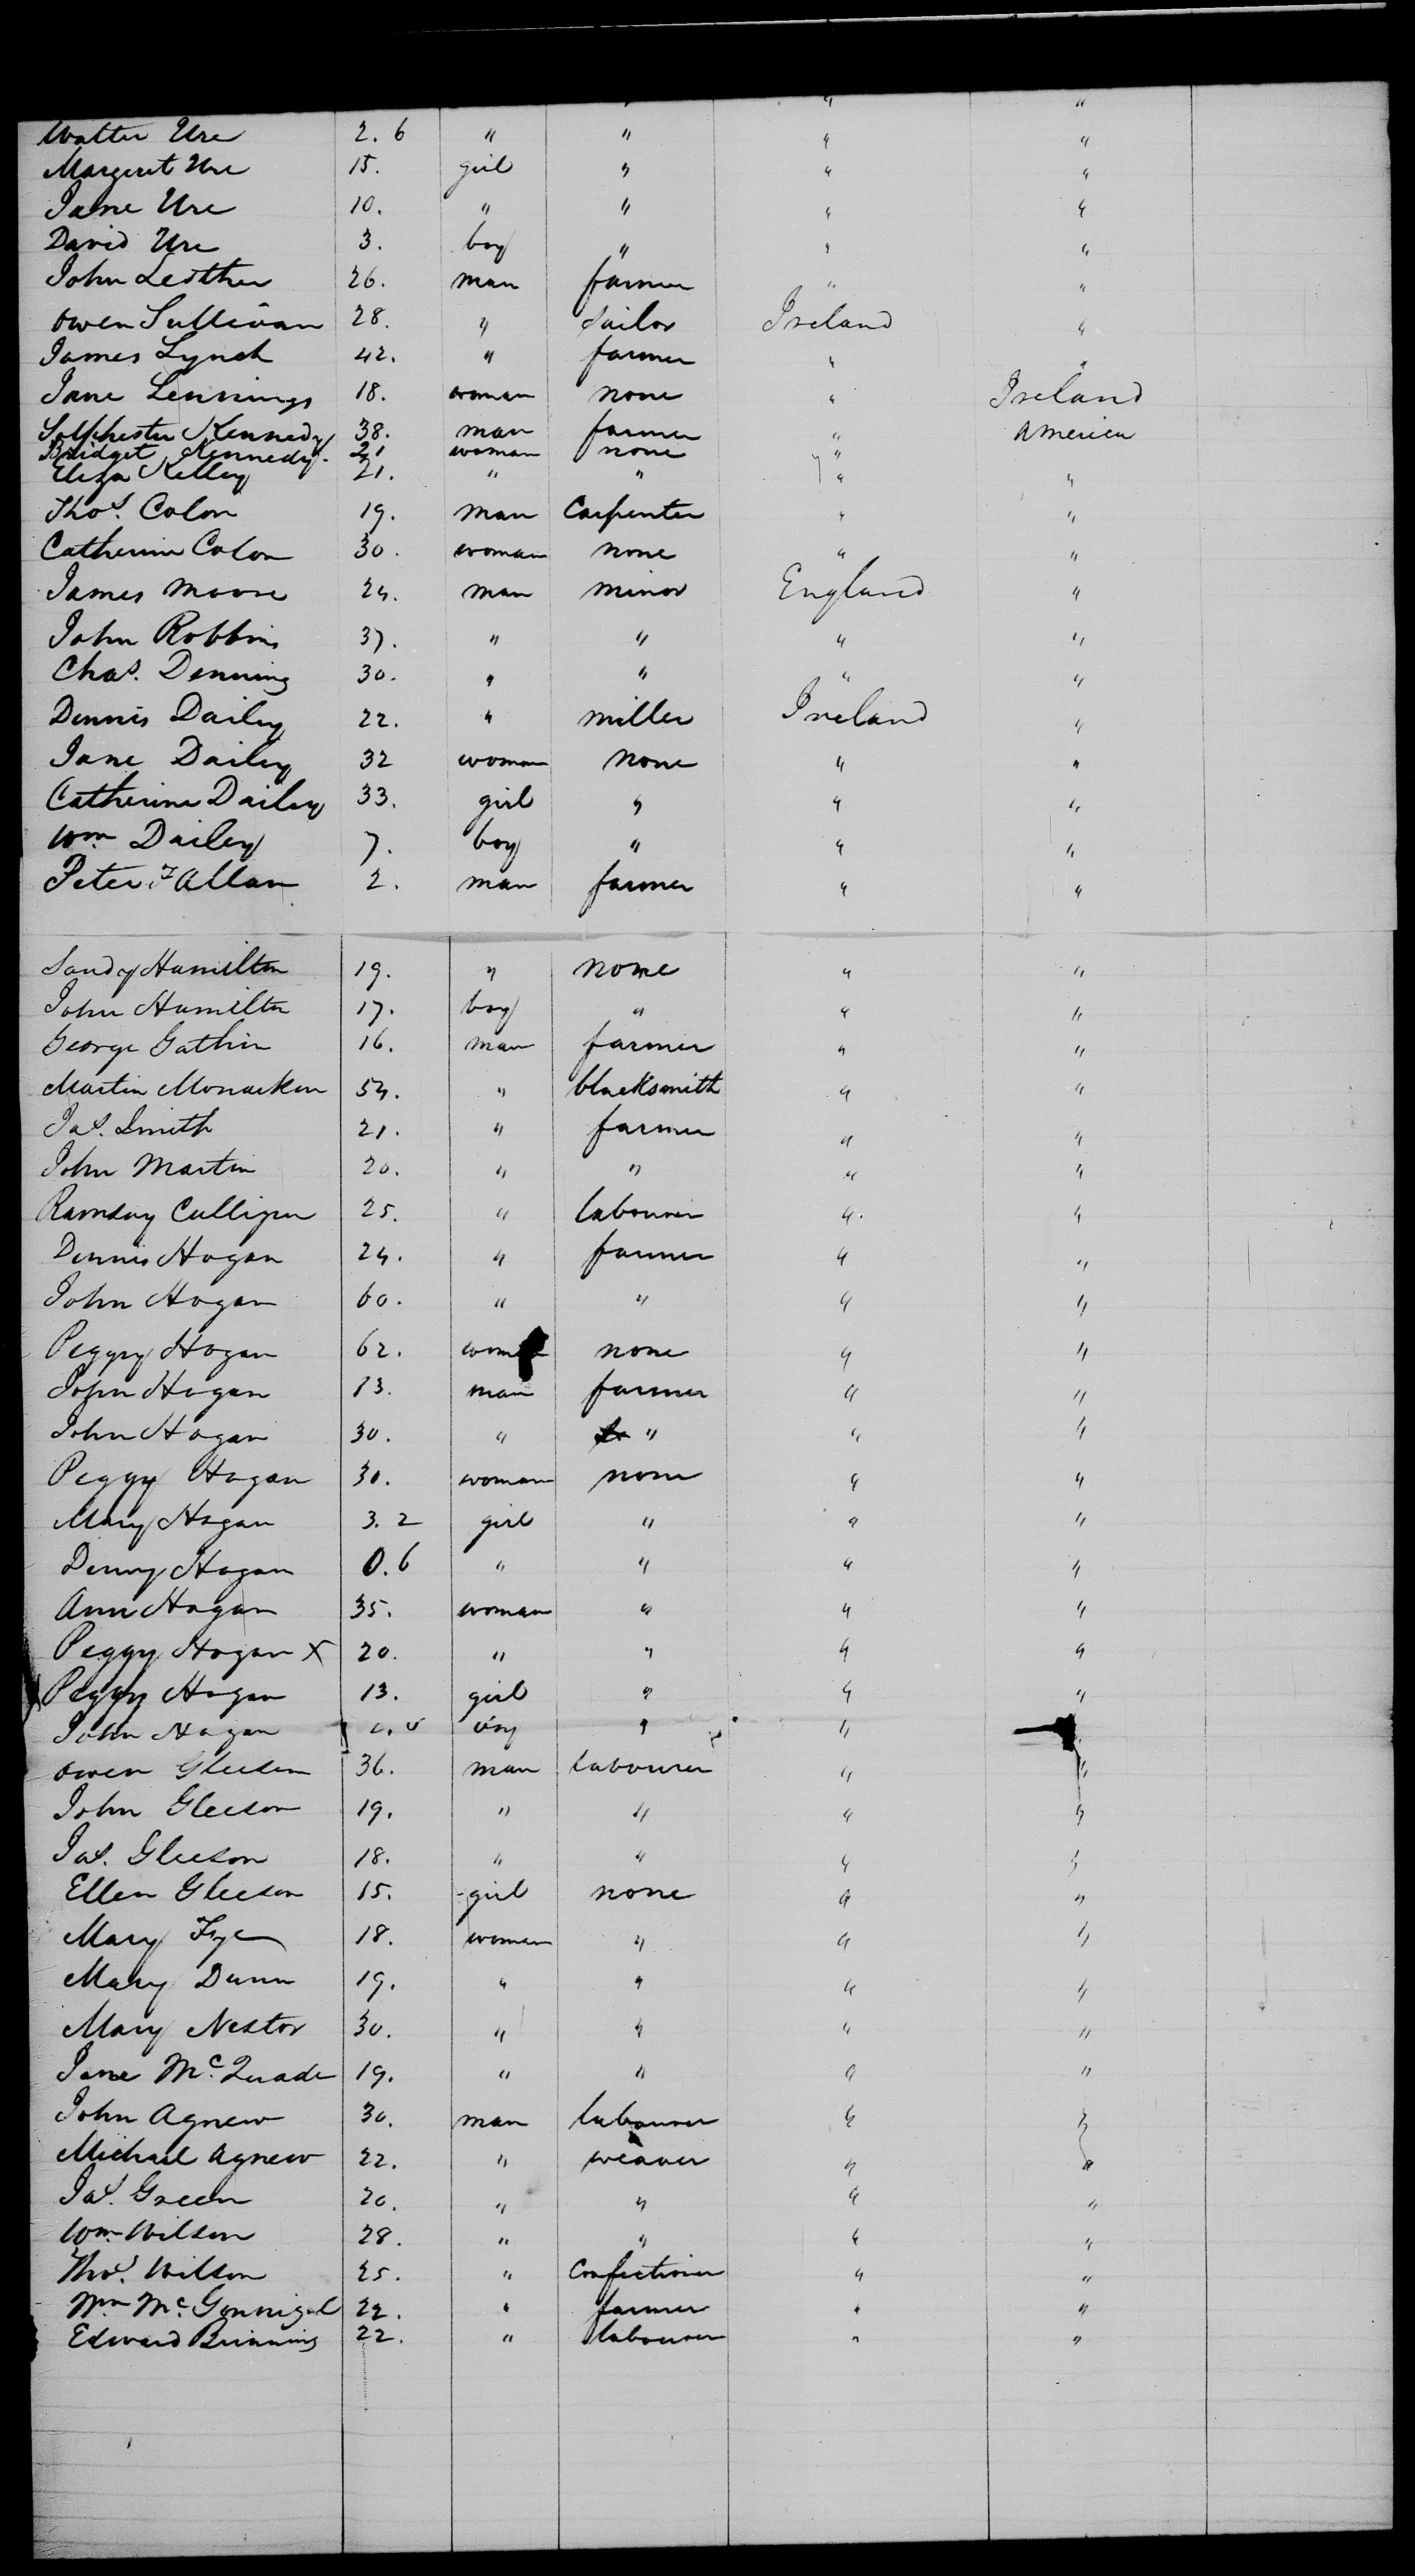 " "
Walter Ure 2. 6 " " " "
Margeret Ure 15. girl " " "
Jane Ure 10. " " " "
David Ure 3. boy " " "
John Leather 26. man farmer " "
Owen Sullivan 28. " Sailor Ireland "
James Lynch 42. " farmer " "
Jane Lennings 18. woman none " Ireland
Kennedy 38. man farmer " America
Bridget Kennedy. 21 woman none "
Eliza Kelley 21. " " " "
Thos. Colon 19. man Carpenter " "
Catherine Colon 30. woman none " "
James Moore 24. man minor England "
John Robbins 37. " " " "
Chas. Denning 30. " " " "
Dennis Dailey 22. " miller Ireland "
Jane Dailey 32 woman none " "
Catherine Dailey 33. girl " " "
Wm Dailey 7. boy " " "
Peter Allan 2. man farmer " "
Sandy Hamilton 19. " none " "
John Hamilton 17. boy " " "
George 16. man farmer " "
Martin 54. " blacksmith " "
Jas. Smith 21. " farmer " "
John Martin 20. " " " "
Ramsay Culligan 25. " labourer " "
Dennis Hogan 24. " farmer " "
John Hogan 60. " " " "
Peggy Hogan 62. woman none " "
John Hogan 13. man farmer " "
John Hogan 30. " " " "
Peggy Hogan 30. woman none " "
Mary Hogan 3. 2 girl " " "
Denny Hogan 0. 6 " " " "
Ann Hogan 35. woman " " "
Peggy Hogan X 20. " " " "
Peggy Hogan 13. girl " " "
John Hogan boy " "
Owen Gleeson 36. man labourer " "
John Gleeson 19. " " " "
Jas. Gleeson 18. " " " "
Ellen Gleeson 15. girl none " "
Mary 18. woman " " "
Mary Dunn 19. " " " "
Mary Nestor 30. " " " "
Jane Mc Quade 19. " " " "
John Agnew 30. man labourer " "
Michael Agnew 22. " weaver " "
Jas. Green 20. " " " "
Wm Wilson 28. " " " "
Thos. Wilson 25. " Confectioner " "
Wm Mc Gonnigal 22. " farmer " "
Edward 22. " labourer " "